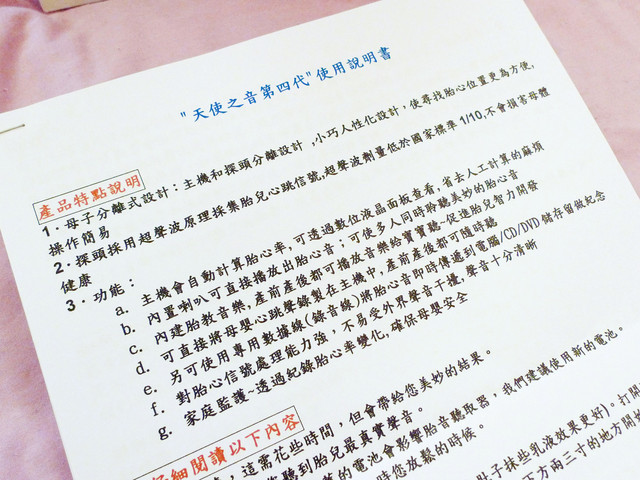 "天使之音第四代"使用說明書
產品特點說明
1．母子分離式設計：主機和探頭分離設計，小巧人性化設計，使尋找胎心位置更為方便,
操作簡易
2．探頭採用超聲波原理採集胎兒心跳信號,超聲波劑量低於國家標準1/10,不會損害母體
健康
3．功能：
a. 主機會自動計算胎心率,可透過數位液晶面板查看,省去人工計算的麻煩
b. 內置喇叭可直接播放出胎心音；可使多人同時聆聽美妙的胎心音
c. 內建胎教音樂,產前產後都可播放音樂給寶寶聽~促進胎兒智力開發
d. 可直接將母嬰心跳聲錄製在主機中,產前產後都可隨時聽
e. 另可使用專用數據線(錄音線)將胎心音即時傳遞到電腦/CD/DVD儲存留做紀念
f. 對胎心信號處理能力強，不易受外界聲音干擾,聲音十分清晰
g. 家庭監護~透過紀錄胎心率變化,確保母嬰安全
仔細閱讀以下內容
，這需花些時間，但會帶給您美妙的結果。
聽到胎兒最真實聲音。
的電池會影響胎音聽取器，我們建議使用新的電池。
時您放鬆的時候。
肚子抹些乳液效果更好)。打開
下方兩三寸的地方開